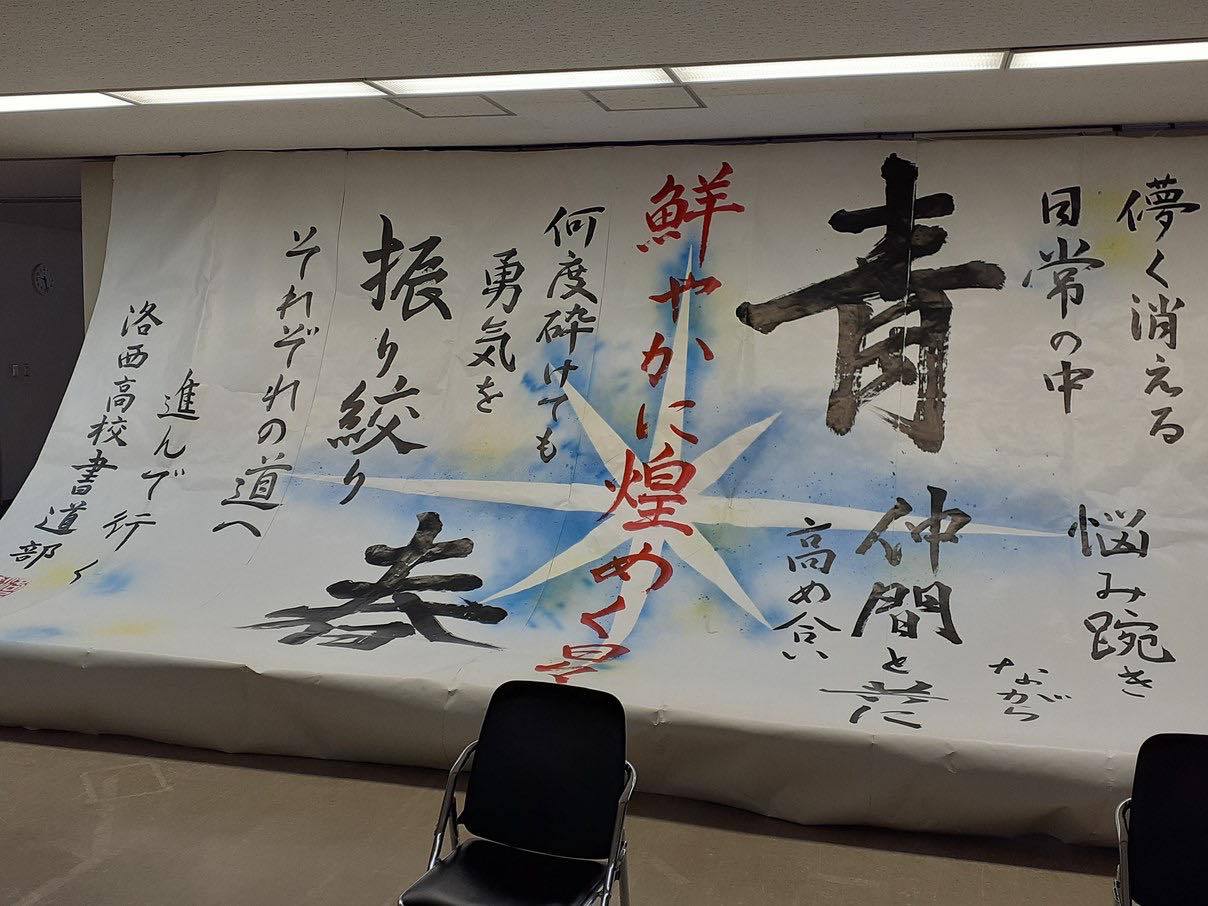 儚く消える
日常の中
悩み踠き
ながら
青
仲間と共に
高め合い
鮮やかに煌めく星
何度砕けても
勇気を
振り絞り
春
それぞれの道へ
進んで行く
洛西高校書道部